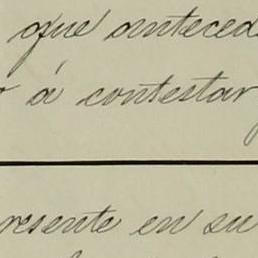 que antecede
á contestar
resente en su